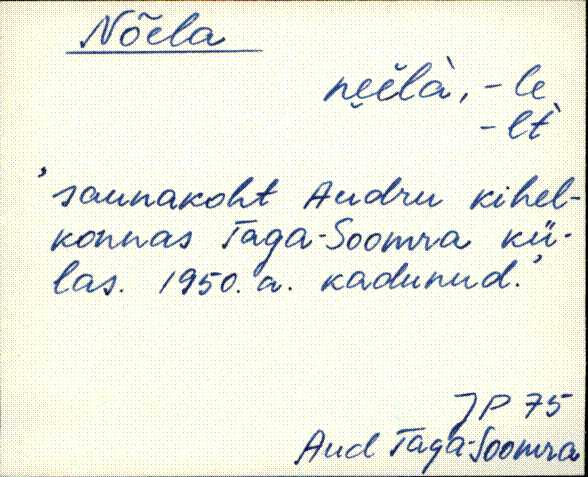 Nõela
ne̮e̮là, -le
-lt̀
'saunakoht Audru kihel-
konnas Taga-Soomra kü-
las. 1950. a. kadunud.'
JP 75
Aud Taga-Soomra